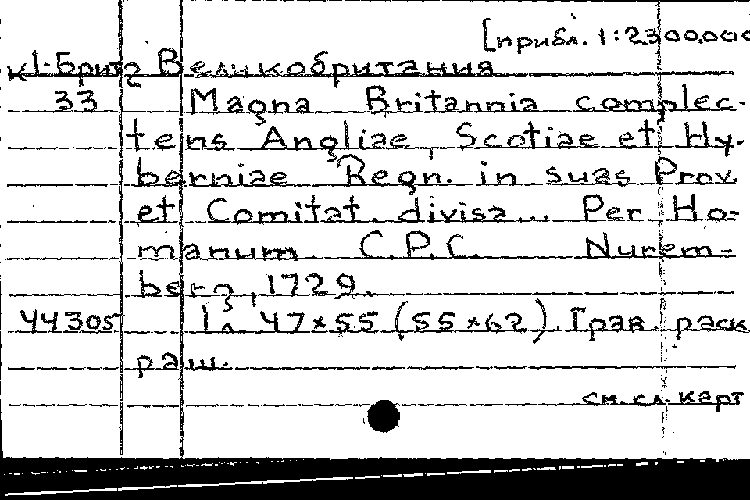 [прибл. 1:2300.000
К1-Брит Великобритания
33 Magna Britannia complec-
tens Angliae, Scotiae et Hy-
berniae Regn. in suas Prov.
et Comitat. divisa... Per Ho-
manum. C.P.C. Nurem-
berg, 1729.
44305 1 л. 47×55 (55×62). Грав. раск
раш.
см. сл. карт